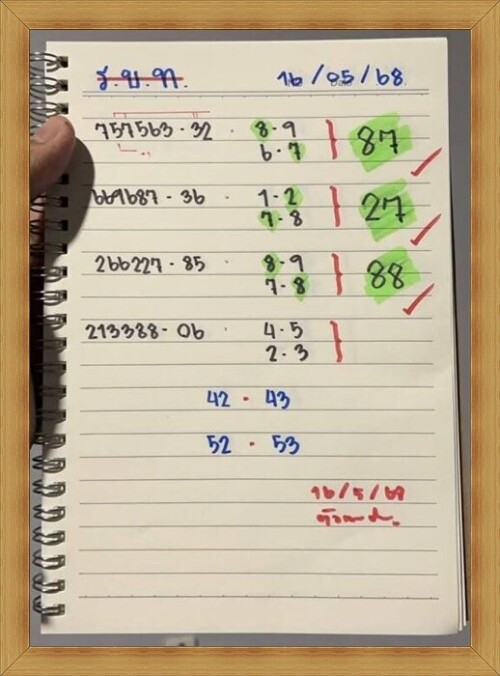 ร.ข.ท. 16/05/68
757563 - 32 . 8 - 9 } 87
6 - 7
669687 - 36 . 1 - 2 } 27
7 - 8
266227 - 85 . 8 - 9 } 88
7 - 8
213388 - 06 . 4 - 5 }
2 - 3
42 - 43
52 - 53
16/5/68